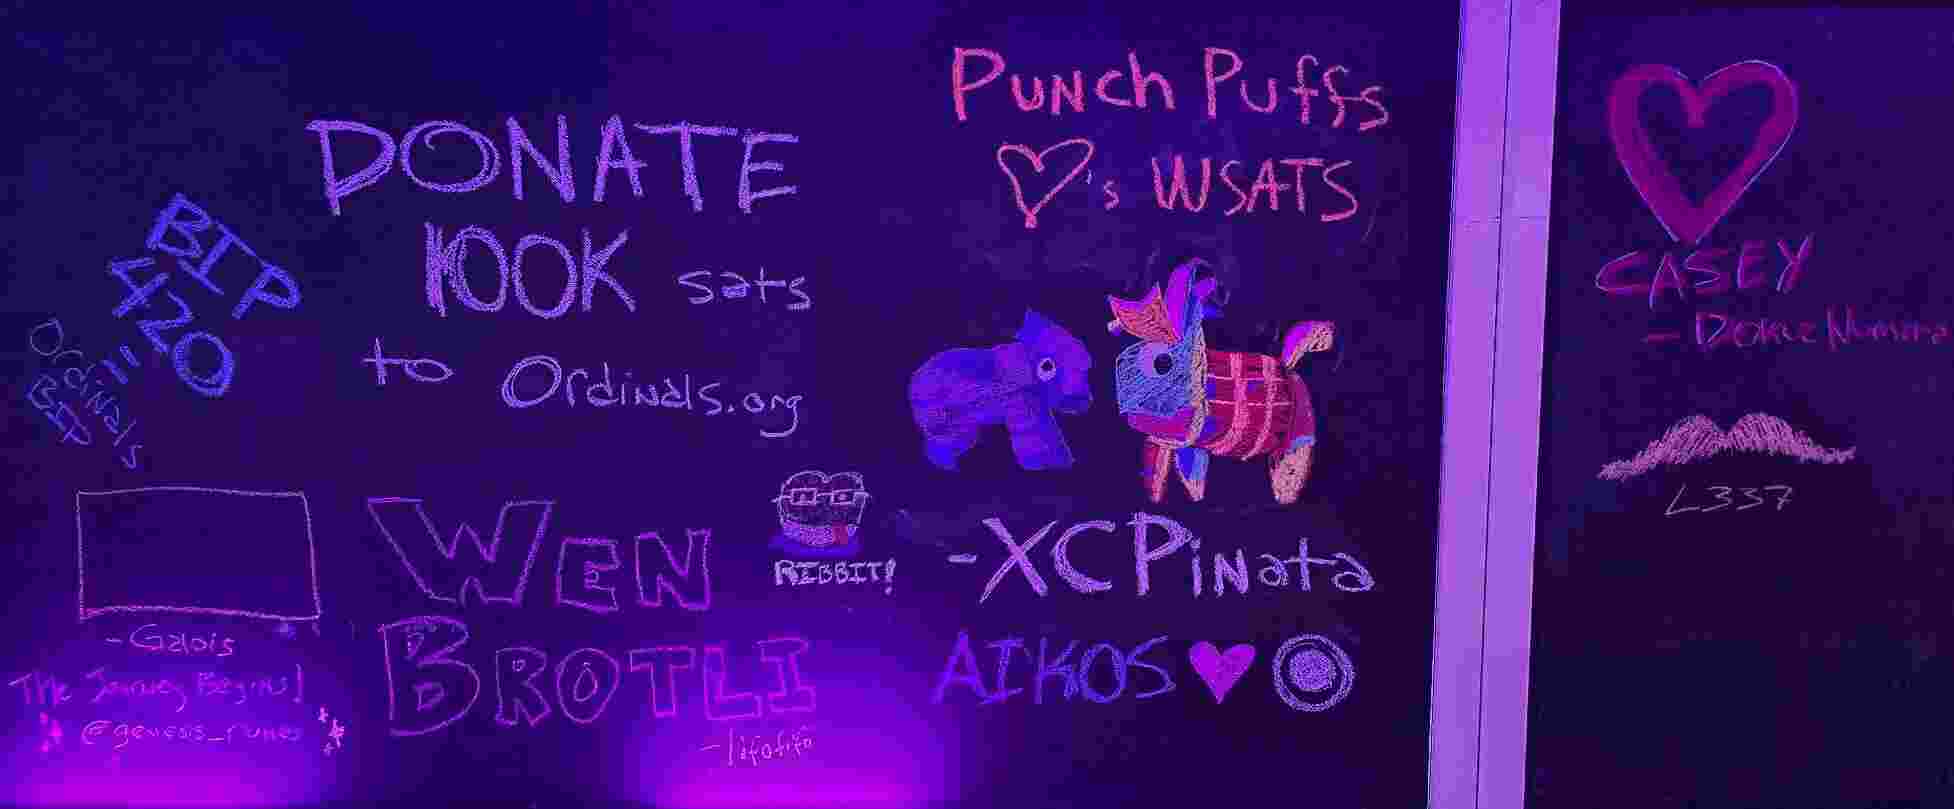 DONATE
100K sats
to Ordinals.org
BIP
420
Ordinals
- Galois
The Journey Begins!
@genesis_runes
WEN
BROTLI
- lifofifo
RIBBIT!
PUNCh PUffs
's WSATS
-XCPiNata
AIKOS
CASEY
L337